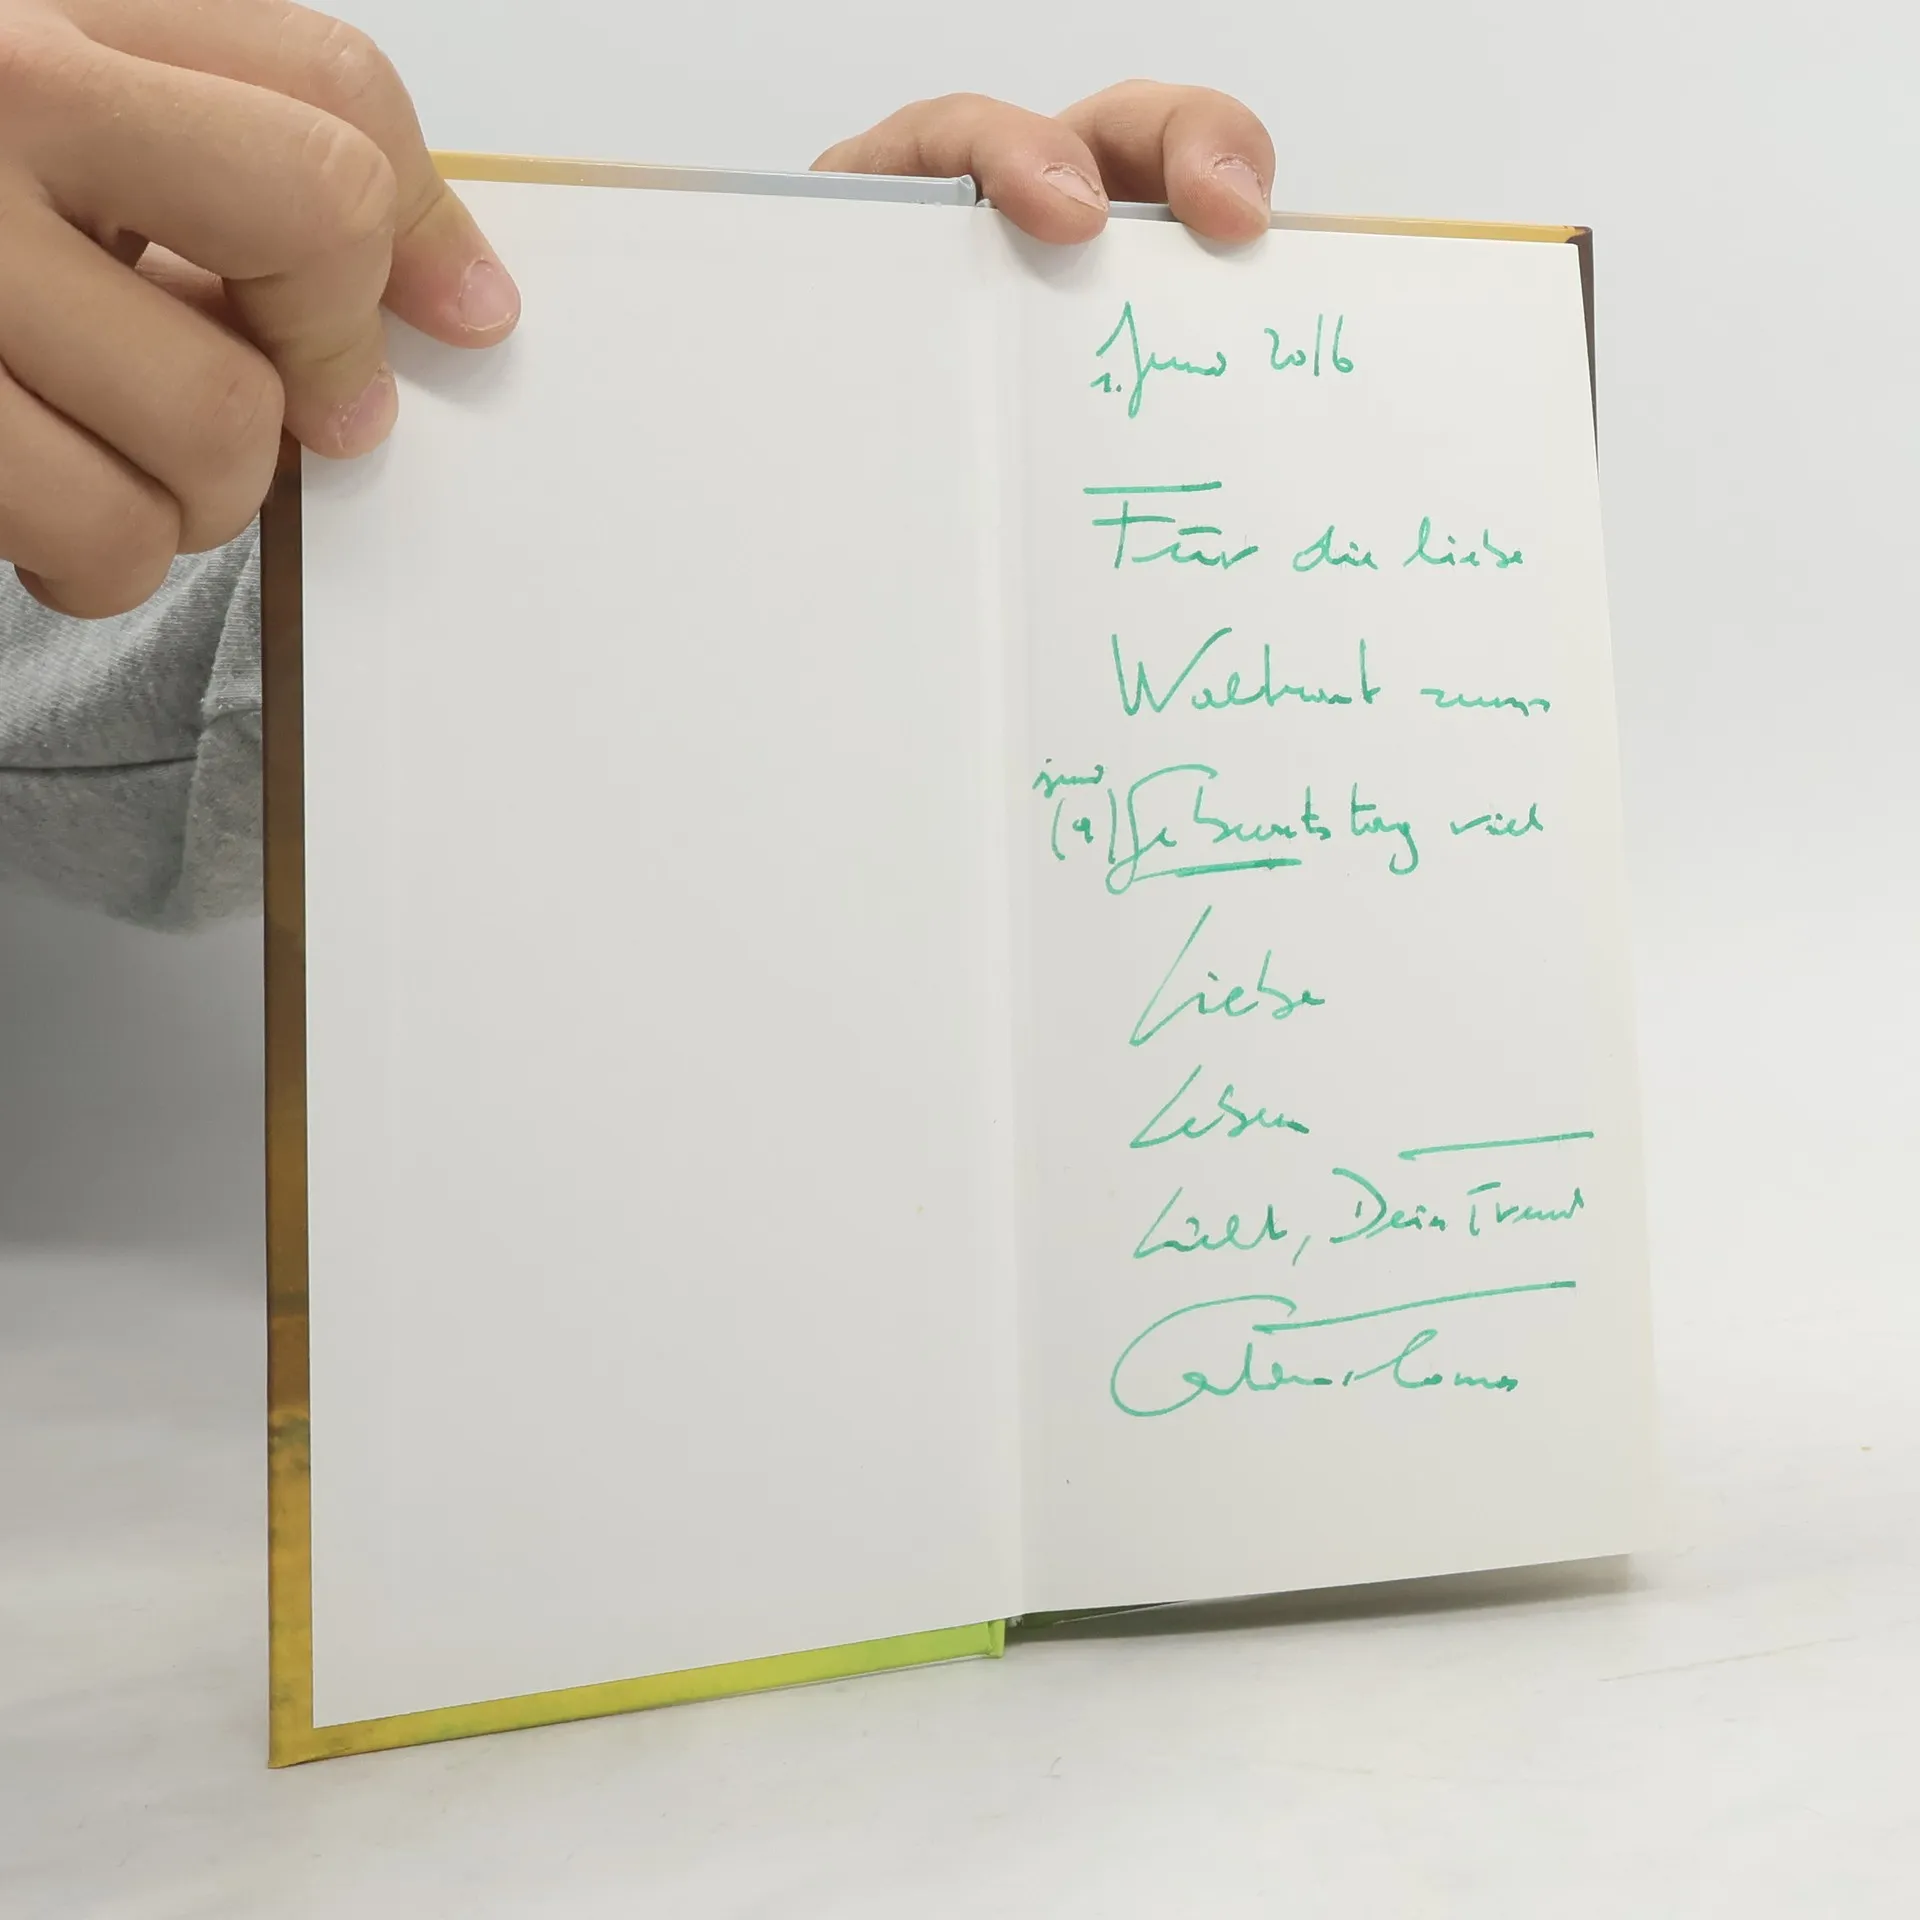 1. Juno 2016
Für die liebe
Waltraut zum
(9) Geburtstag viel
Liebe
Leben
Licht, Dein Freund